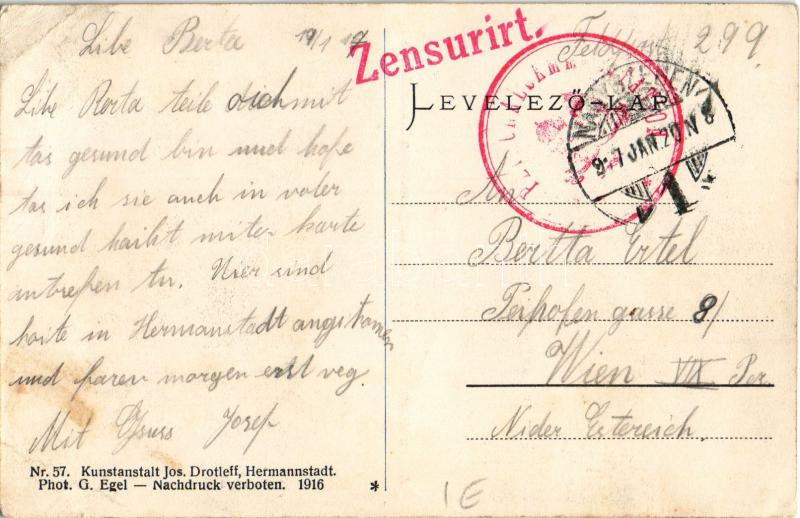 Libe Berta 19/1 17
Libe Berta teile dich mit
tas gesund bin und hofe
tas ich sie auch in voler
gesund haiht miter karte
antrefen tu. Wier sind
haite in Hermanstadt angekomen
und faren morgen erst veg.
Mit Gruss Josef
Nr. 57. Kunstanstalt Jos. Drotleff, Hermannstadt.
Phot. G. Egel — Nachdruck verboten. 1916 *
Zensurirt.
Feldpost 299
LEVELEZŐ-LAP
917 JAN. 20 N 8
1
An
Bertta Ertel
gasse 8/
Wien VII Per.
Nider Estereich.
IE